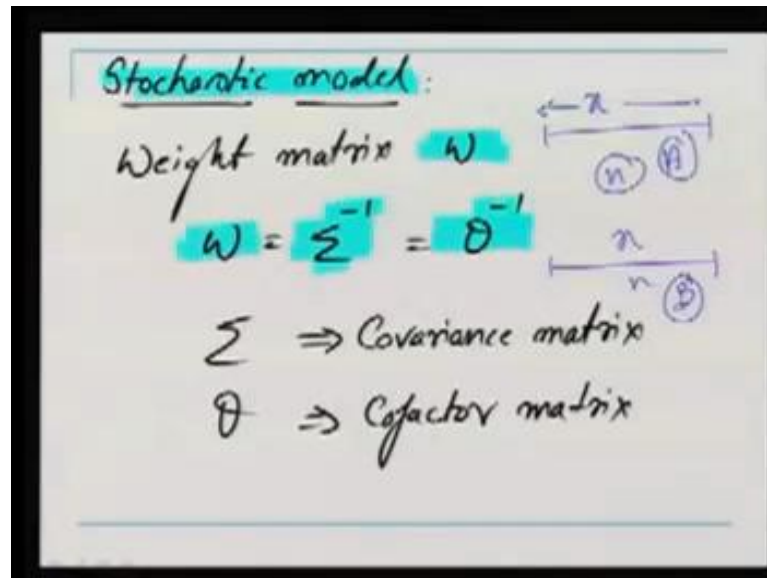 Stochastic model:
Weight matrix W
W = Σ⁻¹ = θ⁻¹
Σ ⇒ Covariance matrix
θ ⇒ Cofactor matrix
x
n A
x
n B